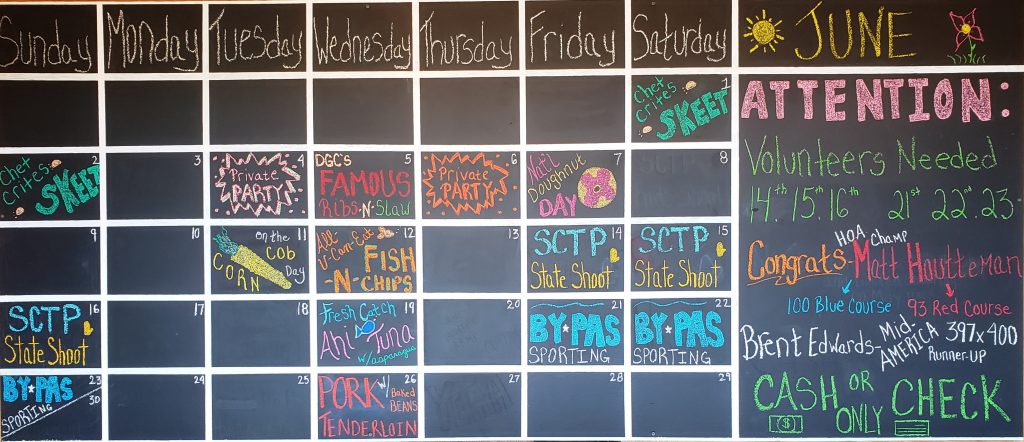 Sunday Monday Tuesday Wednesday Thursday Friday Saturday
JUNE
1
Chet
Crites
SKEET
2
Chet
Crites
SKEET
3
4
Private
PARTY
5
DGC's
FAMOUS
RIBS-N-SLAW
6
Private
PARTY
7
Nat'l
Doughnut
DAY
8
9
10
11
on the
COB
CORN
Day
12
All-
U-Can-Eat
FISH
-N-CHIPS
13
14
SCTP
State Shoot
15
SCTP
State Shoot
16
SCTP
State Shoot
17
18
19
Fresh Catch
Ahi Tuna
w/asparagus
20
21
BY★PAS
SPORTING
22
BY★PAS
SPORTING
23
BY★PAS
SPORTING
30
24
25
26
PORK w/ Baked
BEANS
TENDERLOIN
27
28
29
ATTENTION:
Volunteers Needed
14th 15th 16th 21st 22nd 23
H.O.A Champ
Congrats- Matt Hautteman
100 Blue Course 93 Red Course
Brent Edwards- Mid- 397x400
AMERICA Runner-UP
CASH OR CHECK
ONLY
($)